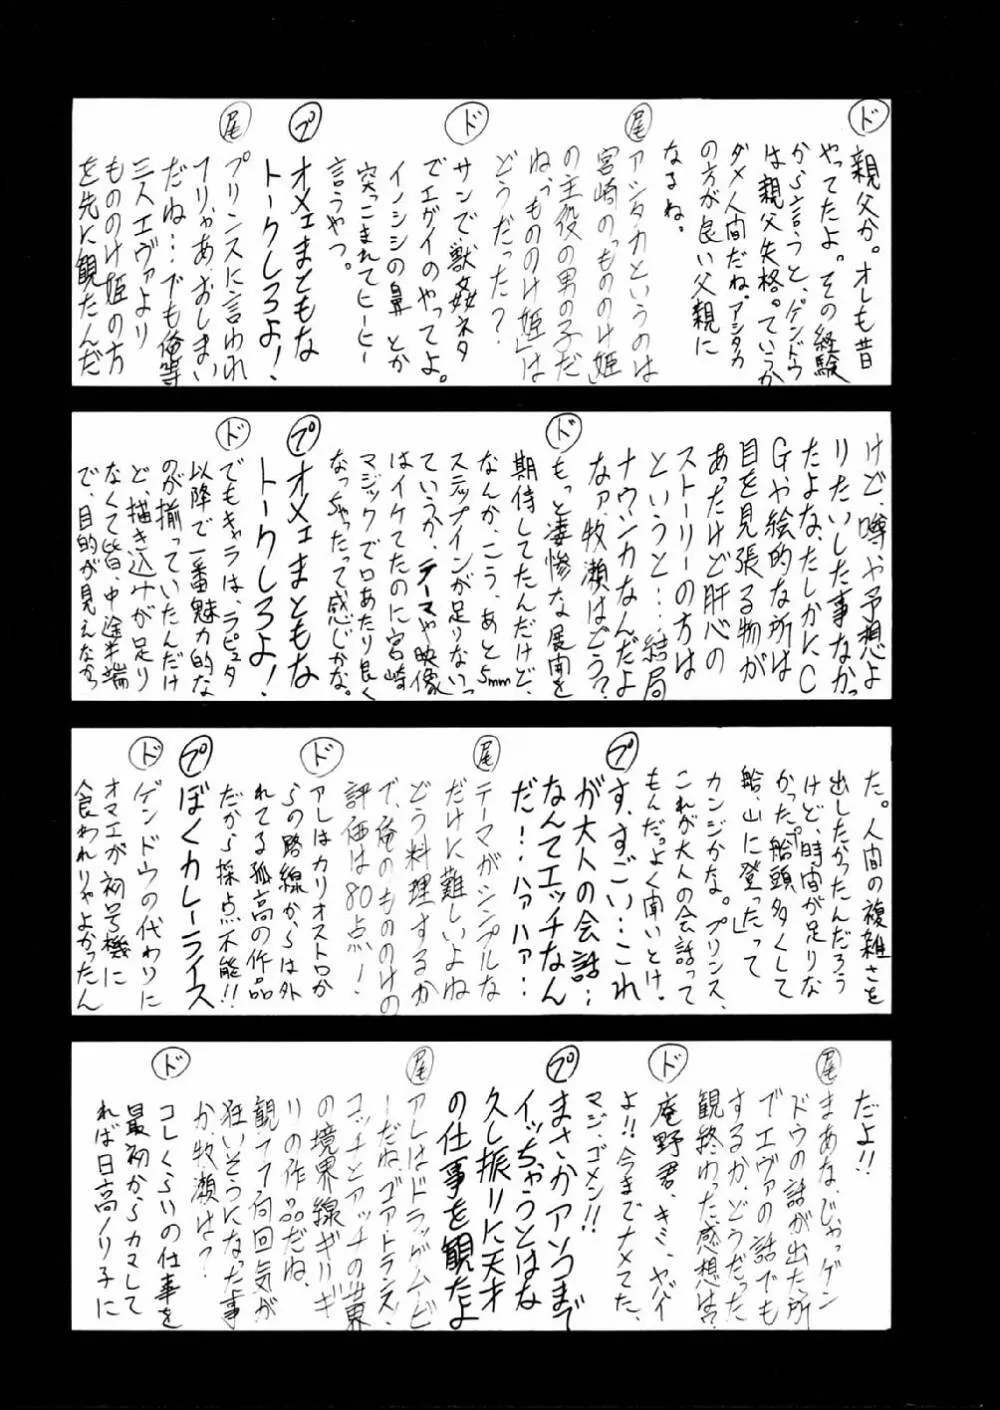 ド
親父か。オレも昔
やってたよ。その経験
から言うと、ゲンドウ
は親父失格。ていうか
ダメ人間だね。アシタカ
の方が良い父親に
なるね。
尾
アシタカというのは
宮崎の「もののけ姫」
の主役の男の子だ
ね。「もののけ姫」は
どうだった?
ド
サンで獣姦ネタ
でエグイのやってよ。
イノシシの鼻とか
突っこまれてヒーヒー
言うやつ。
プ
オメェまともな
トークしろよ!
尾
プリンスに言われ
フリゃあ、おしまい
だね…でも俺等
三人エヴァより
もののけ姫の方
を先に観たんだ
けど、噂や予想よ
りたいした事なかっ
たよな。たしかにC
G.や絵的な所は
目を見張る物が
あったけど肝心の
ストーリーの方は
というと…結局
ナウシカなんだよ
なァ、牧瀬はどう?
ド
もっと凄惨な展開を
期待してたんだけど、
なんか、こう、あと5mm
ステップインが足りないっ
ていうか、テーマや映像
はイケてたのに宮崎
マジックで口あたり良く
なっちゃったって感じかな。
プ
オメェまともな
トークしろよ!
ド
でもキャラは、ラピュタ
以降で一番魅力的な
のが揃っていたんだけ
ど、描き込みが足り
なくて皆、中途半端
で、目的が見えなかっ
た。人間の複雑さを
出したかったんだろう
けど、時間が足りな
かった。「船頭多くして
船、山に登った」って
カンジかな。プリンス、
これが大人の会話って
もんだっよく聞いとけ。
プ
す、すごい…これ
が大人の会話…
なんてエッチなん
だ!…ハァハァ…
尾
テーマがシンプルな
だけに難しいよね
どう料理するか
で、俺のもののけの
評価は80点!
ド
アレはカリオストロか
らの路線からは外
れてる孤高の作品
だから採点不能!!
プ
ぼくカレーライス
ド
ゲンドウの代わりに
オマエが初号機に
食われりゃよかったん
だよ!!
尾
まあな、じゃっゲン
ドウの話が出た所
でエヴァの話でも
するか、どうだった
観終わった感想は?
ド
庵野君、きミ、ヤバイ
よ!!今までナメてた、
マジ、ゴメン!!
プ
まさかアソコまで
イッちゃうとはな
久し振りに天才
の仕事を観たよ
尾
アレはドラッグムービ
ーだね、ゴアトランス、
コッチとアッチの世界
の境界線ギリギ
リの作品だね。
観フフ何回気が
狂いそうになった事
か、牧瀬は?
ド
コレくらいの仕事を
最初からカマして
れば日高ノリ子に